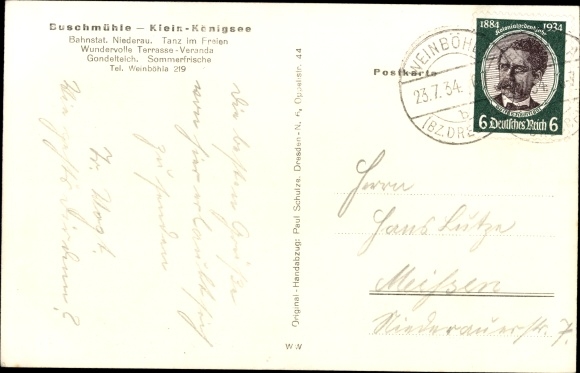 Buschmühle – Klein-Königsee
Bahnstat. Niederau. Tanz im Freien
Wundervolle Terrasse-Veranda
Gondelteich. Sommerfrische
Tel. Weinböhla 219
Die besten Grüße
zu senden
Fr. Vogt.
Wie geht's
Original-Handabzug: Paul Schulze, Dresden-N. 6, Oppellstr. 44
WW
Postkarte
WEINBÖH
23.7.34.
b
(BZ.DRE
1884 1934
6 Deutsches Reich 6
Herrn
Hans Lutze
Meissen
Niederauerstr. 7.